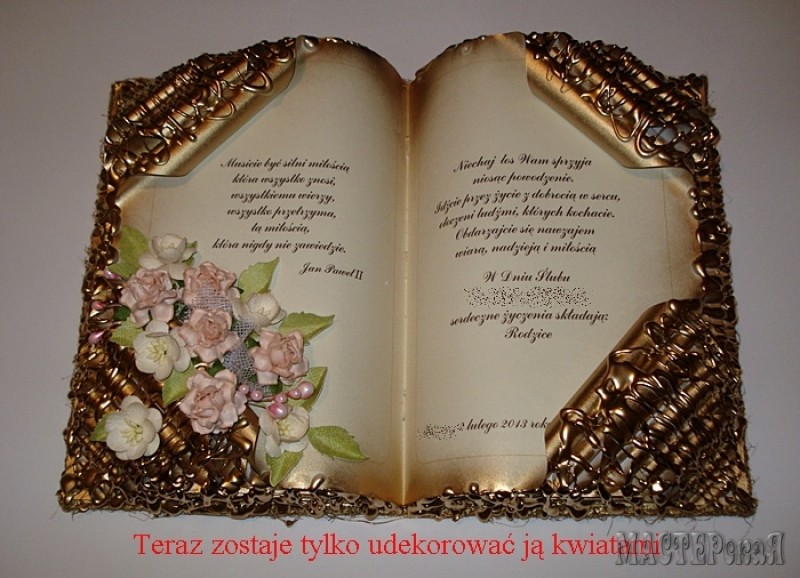 Musicie być silni miłością
która wszystko znosi,
wszystkiemu wierzy,
wszystko przetrzyma,
tą miłością,
która nigdy nie zawiedzie.
Jan Paweł II
Niechaj los Wam sprzyja
niosąc powodzenie.
Idźcie przez życie z dobrocią w sercu,
otoczeni ludźmi, których kochacie.
Obdarzajcie się nawzajem
wiarą, nadzieją i miłością
W Dniu Ślubu
serdeczne życzenia składają:
Rodzice
2 lutego 2013 rok
Teraz zostaje tylko udekorować ją kwiatami
МАСТЕРская